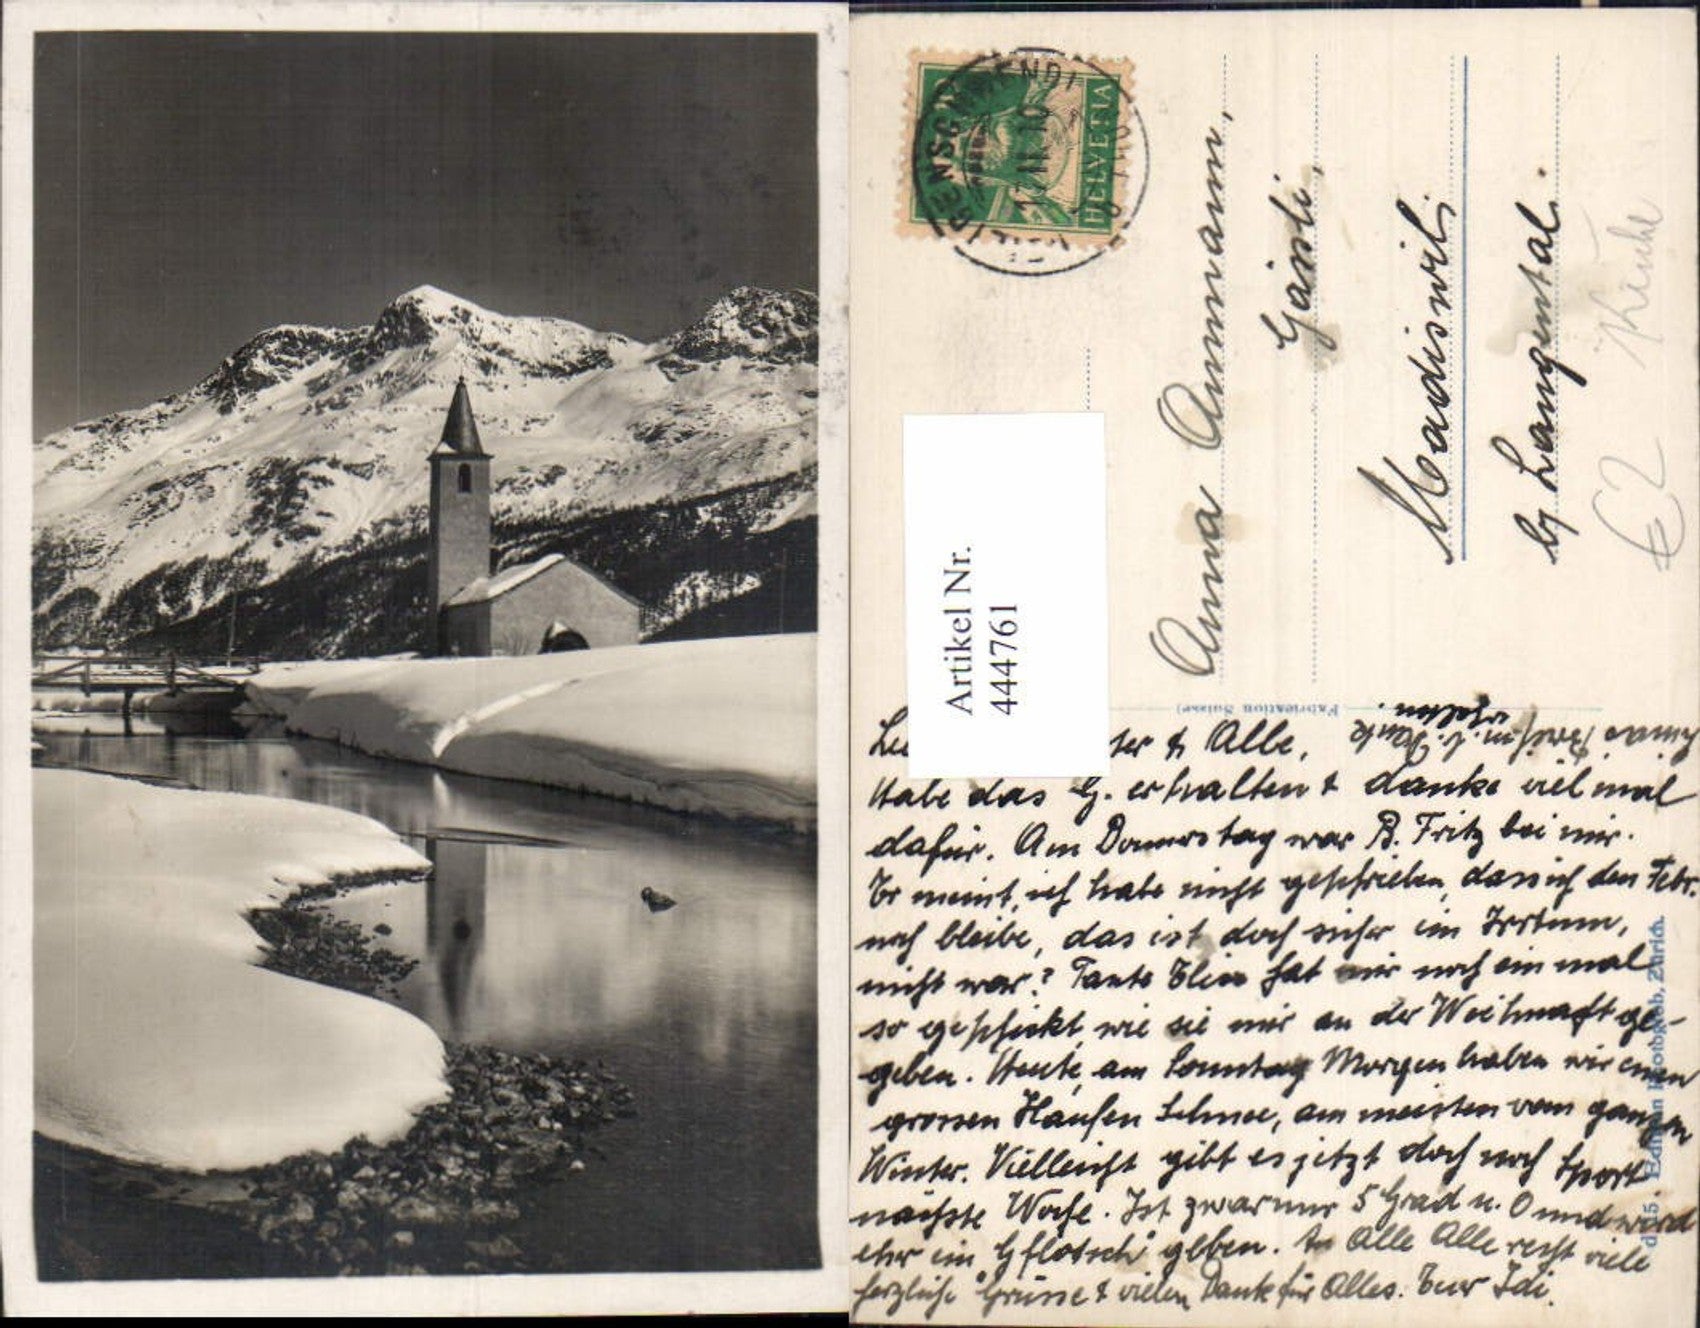 HELVETIA
Artikel Nr.
444761
Anna Ammann,
Gässli,
Madiswil,
by Langental.
€ 2
(Fabrication Suisse)
ter & Alle,
Habe das G. erhalten & danke viel mal
dafür. Am Donnerstag war B. Fritz bei mir.
Er meint, ich habe nicht geschrieben, dass ich den Febr.
noch bleibe, das ist doch sicher im Irrtum,
nicht war? Tante hat mir noch ein mal
so geschickt, wie sie mir an der Weihnacht ge-
geben. Heute, am Sonntag Morgen haben wir einen
grossen Haufen Schnee, am meisten vom ganzen
Winter. Vielleicht gibt es jetzt doch noch Sport
nächste Woche. Ist zwar nur 5 Grad u. 0 und wird
eher ein "Gflotsch" geben. An Alle Alle recht viele
herzliche Grüsse & vielen Dank für Alles. Euer Idi.